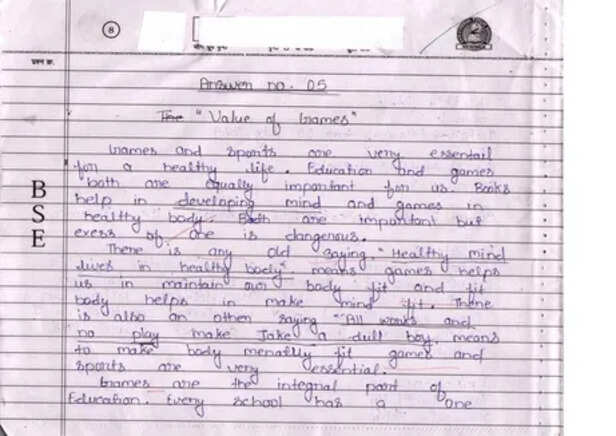 8
प्रश्न क्र.
Answer no. 05
The "Value of Games"
Games and sports are very essentail
for a healthy life. Education and games
both are equally important for us. Books
help in developing mind and games in
healthy body. Both are important but
exess of one is dangerous.
There is any old saying, "Healthy mind
lives in healthy body". means games helps
us in maintain our body fit and fit
body helps in make mind fit. There
is also an other saying "All works and
no play make Jake a dull boy. means
to make body menally fit games and
sports are very essential.
Games are the integral part of
Education. Every school has a one
B
S
E